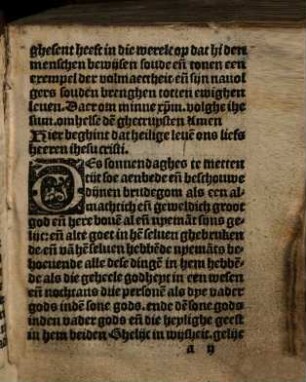 ghesent heeft in die werelt op dat hi den
menschen bewijsen soude eñ tonen een
exempel der volmaectheit eñ sijn nauol
gers souden brenghen totten ewighen
leuen. Daer om minne xp̄m. volghe ihe
sum. omhelse dē ghecruysten Amen
Hier beghint dat heilige leuē ons liefs
heeren ihesu cristi.
DEs sonnendaghes te metten
tijt soe aenbede eñ beschouwe
dijnen brudegom als een al⸗
machtich eñ geweldich groot
god eñ here bouē al eñ nyemāt sons ge⸗
lijc: eñ alee goet in hē seluen ghebruken
de. eñ vā hē seluen hebbēde nyemāts be⸗
hoeuende alle dese dingē in hem hebbē⸗
de als die geheele godheyt in een wesen
eñ nochtans drie personē als dye vader
gods indē sone gods. ende dē sone gods
inden vader gods eñ die heylighe geest
in hem beiden Ghelijc in wijsheit. gelijc
a ij